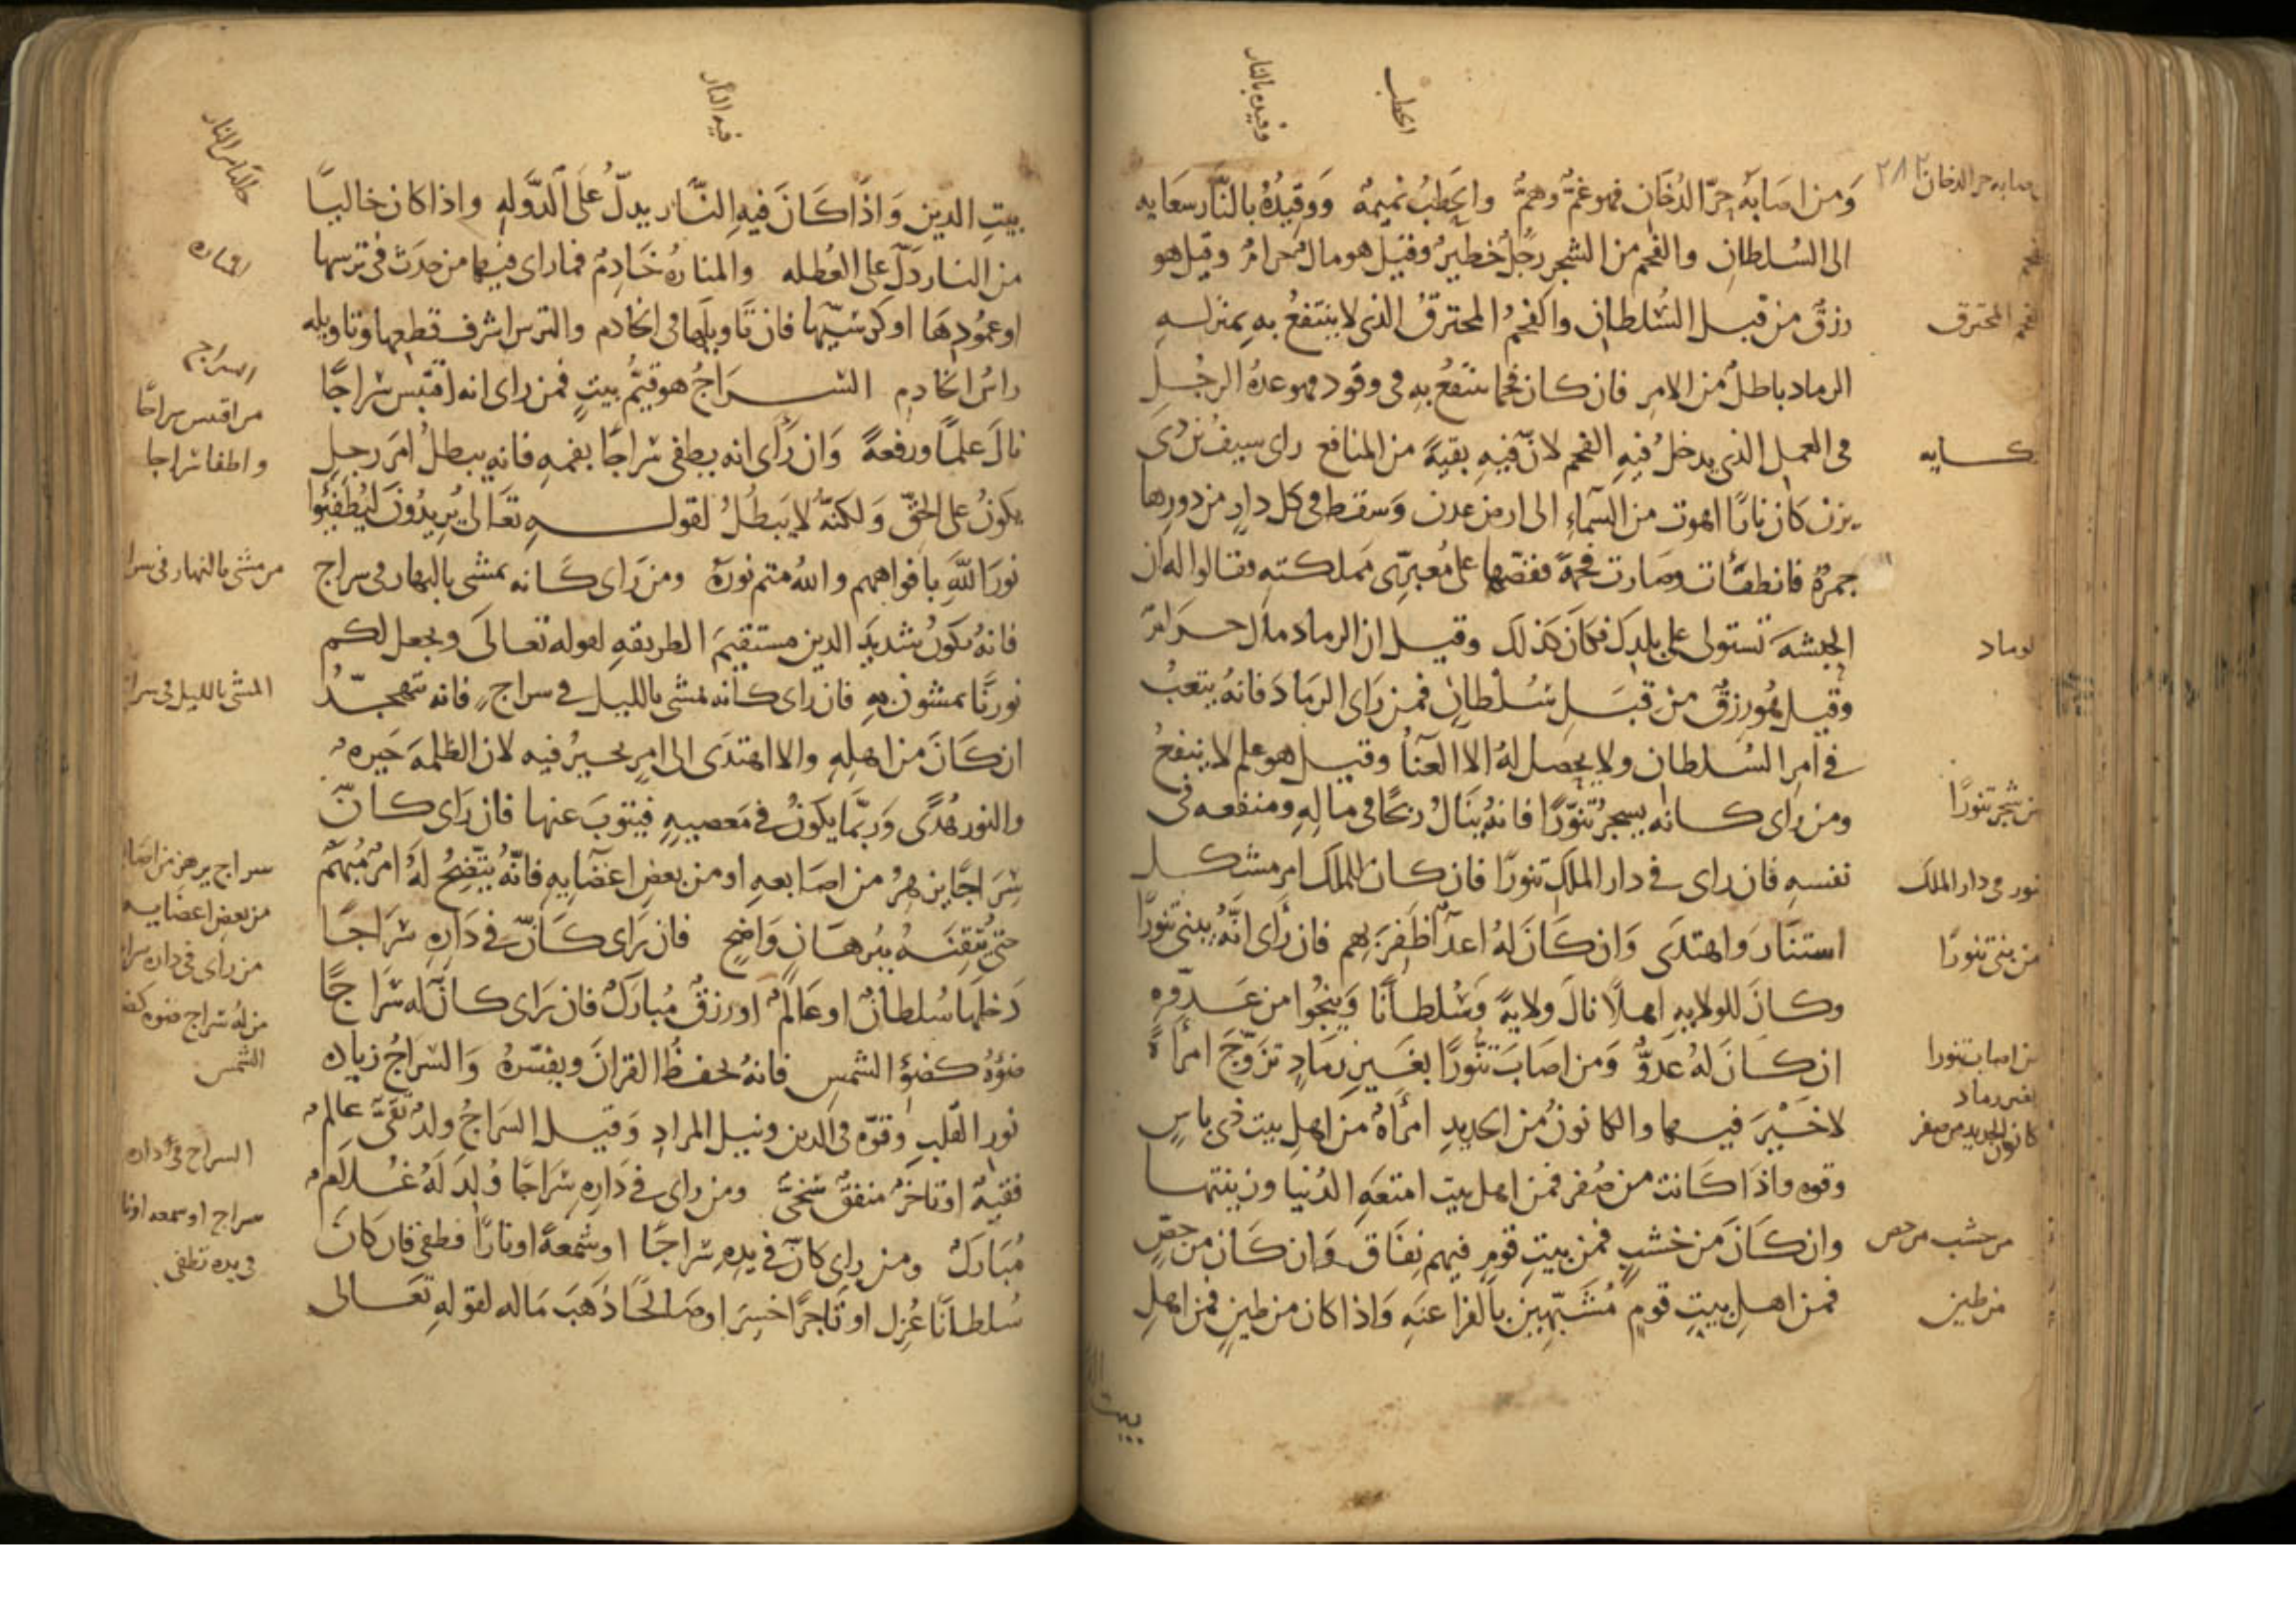 الحطب
وقيده بالنار
ومن اصابه حرّ الدخان فهو غمٌّ وهمٌّ والحطب نميمةٌ ووقيدُهُ بالنّار سعايه
الى السلطان والفحم من الشجر رجلٌ خطيرٌ وقيل هو مالٌ حرامٌ وقيل هو
رزقٌ من قبل السُلطان والفحمُ المحترقُ الذي لا ينتفعُ بهِ بمنزلـه
الرماد باطلٌ من الامرِ فان كان فحما ينتفعُ بهِ في وقود فهو عدةُ الرجُلِ
في العمل الذي يدخلُ فيهِ الفحم لانّ فيهِ بقيةً من المنافع راى سيفُ بن ذى
يزن كان نارًا اهوت من السّماءِ الى ارض عدن وسقط في كل دارٍ من دورها
جمرةٌ فانطفأت وصارت فحمةً فقصّها على مُعبرّى مملكته فقالوا له ان
الحبشةَ تستولى على بلدك فكان كذلك وقيل ان الرماد مال حرامٌ
وقيل هُو رزقٌ من قبَل سُلْطانٍ فمن رَاى الرمادَ فانهُ يتعبُ
في امرِ السُلطان ولا يحصل لهُ الا العنأُ وقيل هو علم لا ينفعُ
ومن راى كانه يسجرُ تنّورًا فانهُ ينالُ ربحًا في ماله ومنفعه في
نفسهِ فان راى في دار الملكِ تنورًا فان كان للملك امر مشكل
استنارَ واهتدَى وَان كَانَ لهُ اعدآ ظَفِرَ بهم فان رأى انّهُ يبنى تنورًا
وكانَ للولايهِ اهلًا نالَ ولايةً وَسُلطانًا وينجُوا من عدوّهِ
ان كانَ لهُ عدوٌّ وَمن اصابَ تنّورًا بغَيرِ رمَادٍ تزوّجَ امرأةً
لا خَيْرَ فيها والكانونُ من الحديدِ امرأةٌ من اهلِ بيت ذي باسٍ
وقوه واذَا كانت من صُفر فمن اهل بيت امتعَهِ الدُنيا وزينتها
وان كانَ من خشبٍ فمن بيتِ قومٍ فيهم نفَاق وَان كان من جصٍّ
فمن اهلِ بيتِ قومٍ مُشَبّهينَ بالفراعنَهِ وَاذا كان من طينٍ فمن اهلِ
بيت
الفحم المحترق
رماد
من سجر تنورًا
تنور في دار الملك
من بنى تنورًا
من اصاب تنورا
بغير رماد
كانون الحديد من صفر
من خشب من جص
من طين
فيه النار
بيتِ الدين وَاذَا كَانَ فيهِ النَّار يدلّ عَلى الدَّولهِ واذا كان خاليًا
من النار دَلّ على العُطله والمنارهُ خَادِمٌ فما راى فيها من حدَث في ترسها
او عمُودِهَا او كرسيّها فان تاويلها في الخادم والترس اشرف قطعها وتاويله
راسُ الخادمِ السراجُ هو قيّمُ بيتٍ فمن راى انه اقتبس سراجًا
نالَ علمًا ورفعةً وَان رَأى انه يطفى سراجًا بفمهِ فانه يبطلُ امرَ رجلٍ
يكونُ على الحقّ وَلكنّهُ لا يَبطُلُ لقولـهِ تعَالى يُريدُونَ ليُطفِئوا
نورَ اللهَ بافواههم واللهُ متم نورهِ ومن رَاى كَانه يمشى بالنهار في سراج
فانهُ يكونُ شديدَ الدين مستقيمَ الطريقهِ لقوله تعالىَ ويجعل لكم
نورًا تمشون بهِ فان راى كانه يمشى بالليل في سراج فانه يتهجّدُ
ان كَانَ من اهلهِ والا اهتدَى الى امرٍ تحيرُ فيه لان الظلمةَ حَيره
والنور هُدًى وَربّما يكونُ في مَعصيهِ فيتوبَ عنها فان رَاى كانّ
سِرَاجًا يزهرُ من اصَابعهِ او من بعضِ اعضَايهِ فانّهُ يتّضحُ لهُ امرٌ مُبهَمٌ
حتى يُتقِنَهُ ببُرهَانٍ وَاضحٍ فان رَاى كَانّ في دَارِهِ سَرَاجًا
دَخلها سُلطانٌ او عَالمٌ او رزقٌ مُبارَكٌ فان رَاى كانّ له سَرَاجًا
ضوؤهُ كضوءِ الشمسِ فانهُ يحفظُ القرانَ ويفسّرهُ وَالسراجُ زياده
نورِ القلبِ وقوّه في الدين ونيل المرادِ وَقيل السَراجُ ولدٌ تقىٌّ عالِمٌ
فقيهٌ او تاجرٌ منفقٌ سَخىٌّ ومن راى في دَارِهِ سَرَاجًا وُلِدَ لَهُ غُلَامٌ
مُبَارَكٌ ومن راى كانّ في يدِهِ سراجًا او شمعةً او نارًا فطفى فان كانَ
سُلطانًا عُزل او تَاجرًا خسِرَ او صالحًا ذهَبَ مَاله لقولهِ تعَالى
المناره
السراج
من اقتبس سراجًا
واطفا سراجا
من مشى بالنهار في سرا
المشى بالليل في سرا
من بعض اعضايه
من راى في داره سرا
من له سراج ضوه كضو
الشمس
السراج في داره
سراج او شمعه او نا
في يده تطفى